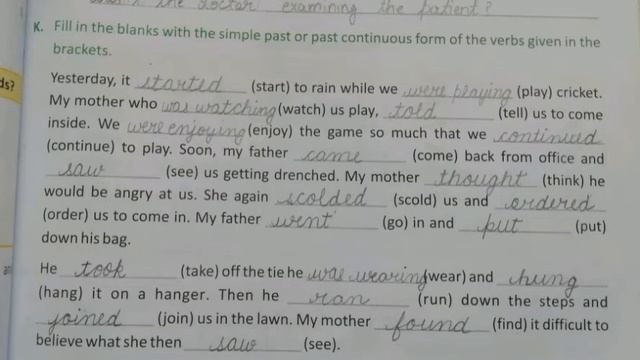 the doctor examining the patient?
K. Fill in the blanks with the simple past or past continuous form of the verbs given in the
brackets.
ds?
Yesterday, it started (start) to rain while we were playing (play) cricket.
My mother who was watching (watch) us play, told (tell) us to come
inside. We were enjoying (enjoy) the game so much that we continued
(continue) to play. Soon, my father came (come) back from office and
saw (see) us getting drenched. My mother thought (think) he
would be angry at us. She again scolded (scold) us and ordered
(order) us to come in. My father went (go) in and put (put)
down his bag.
He took (take) off the tie he was wearing (wear) and hung
(hang) it on a hanger. Then he ran (run) down the steps and
joined (join) us in the lawn. My mother found (find) it difficult to
believe what she then saw (see).